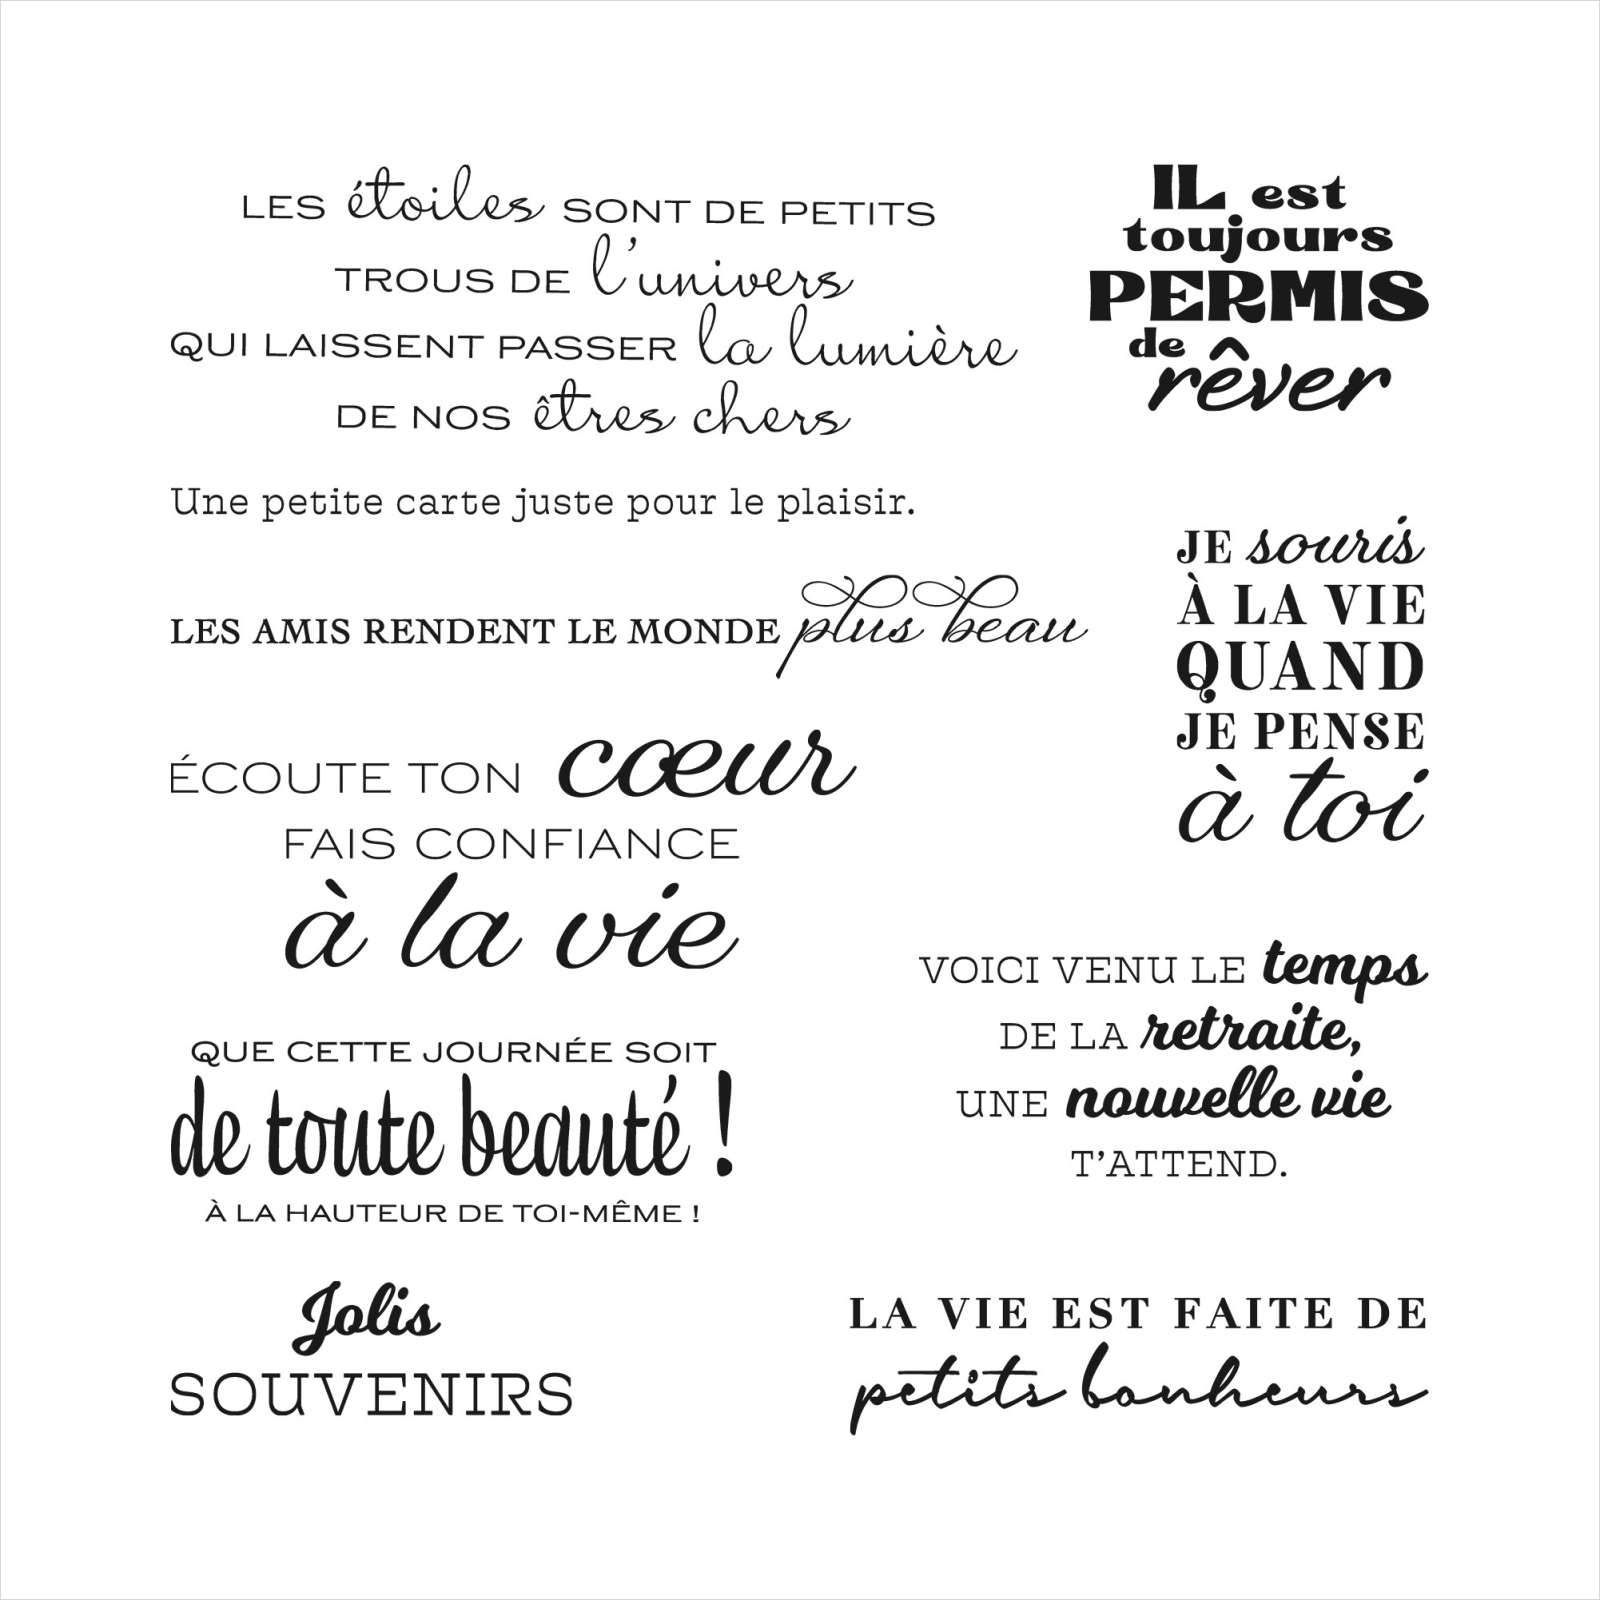 LES étoiles SONT DE PETITS
TROUS DE l'univers
QUI LAISSENT PASSER la lumière
DE NOS êtres chers
IL est
toujours
PERMIS
de
rêver
Une petite carte juste pour le plaisir.
LES AMIS RENDENT LE MONDE plus beau
JE souris
À LA VIE
QUAND
JE PENSE
à toi
ÉCOUTE TON cœur
FAIS CONFIANCE
à la vie
VOICI VENU LE temps
DE LA retraite,
UNE nouvelle vie
T'ATTEND.
QUE CETTE JOURNÉE SOIT
de toute beauté !
À LA HAUTEUR DE TOI-MÊME !
Jolis
SOUVENIRS
LA VIE EST FAITE DE
petits bonheurs